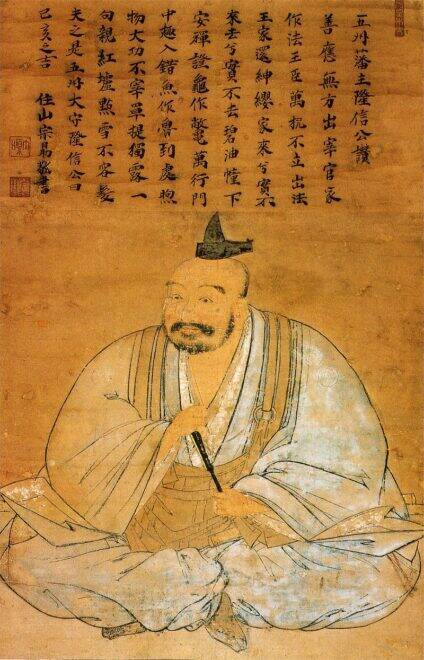 五州藩主隆信公讃
善應無方出宰官家
作法王臣萬机不立出法
王家還紳纓家来兮實不
来去兮實不去碧油幢下
安禅證龜作鼈萬行門
中趣入錯魚作魯到處煦
物大功不宰單提獨露一
句親紅爐點雪不容髪
夫之是五州大守隆信公曰
己亥之吉
住山宗易書